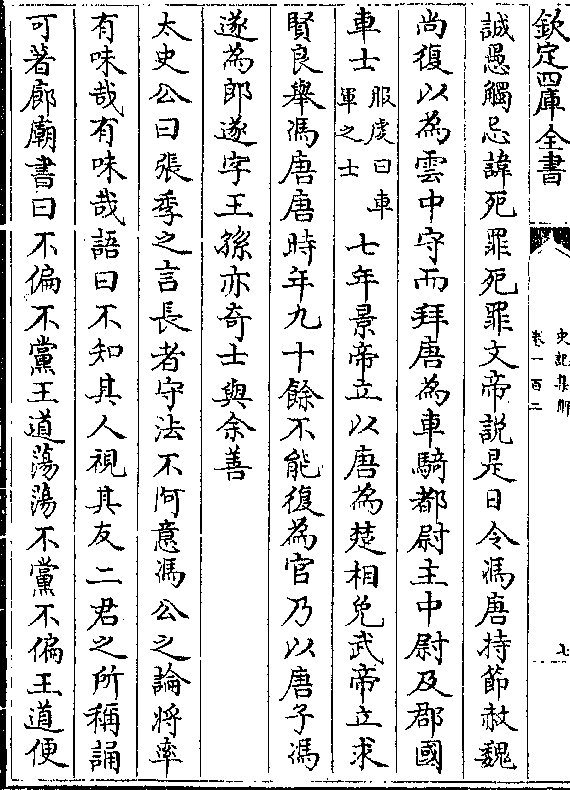 欽定四庫全書
史記集解
卷一百二
七
誠愚觸忌諱死罪死罪文帝説是日令馮唐持節赦魏
尚復以為雲中守而拜唐為車騎都尉主中尉及郡國
車士服虔曰車軍之士七年景帝立以唐為楚相免武帝立求
賢良舉馮唐唐時年九十餘不能復為官乃以唐子馮
遂為郎遂字王孫亦奇士與余善
太史公曰張季之言長者守法不阿意馮公之論將率
有味哉有味哉語曰不知其人視其友二君之所稱誦
可著廊廟書曰不偏不黨王道蕩蕩不黨不偏王道便